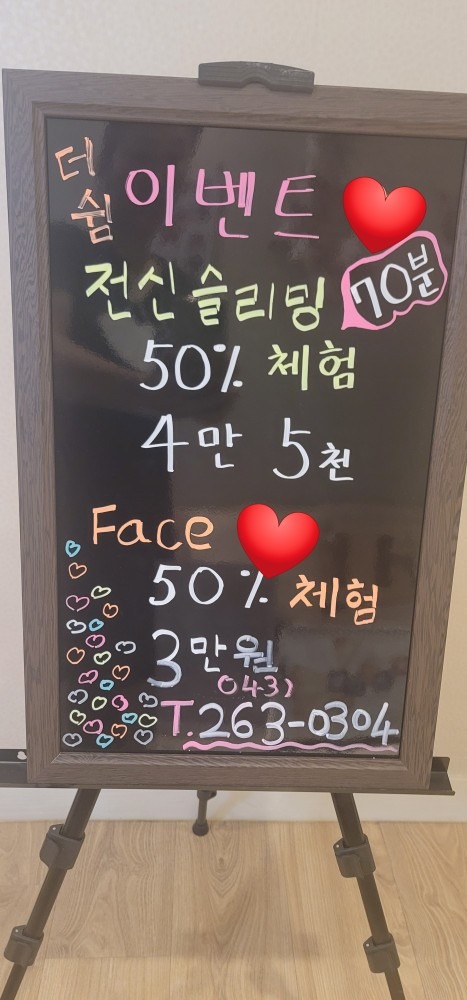 더쉼 이벤트
전신슬리밍 70분
50% 체험
4만 5천
Face
50% 체험
3만원
043)
T.263-0304